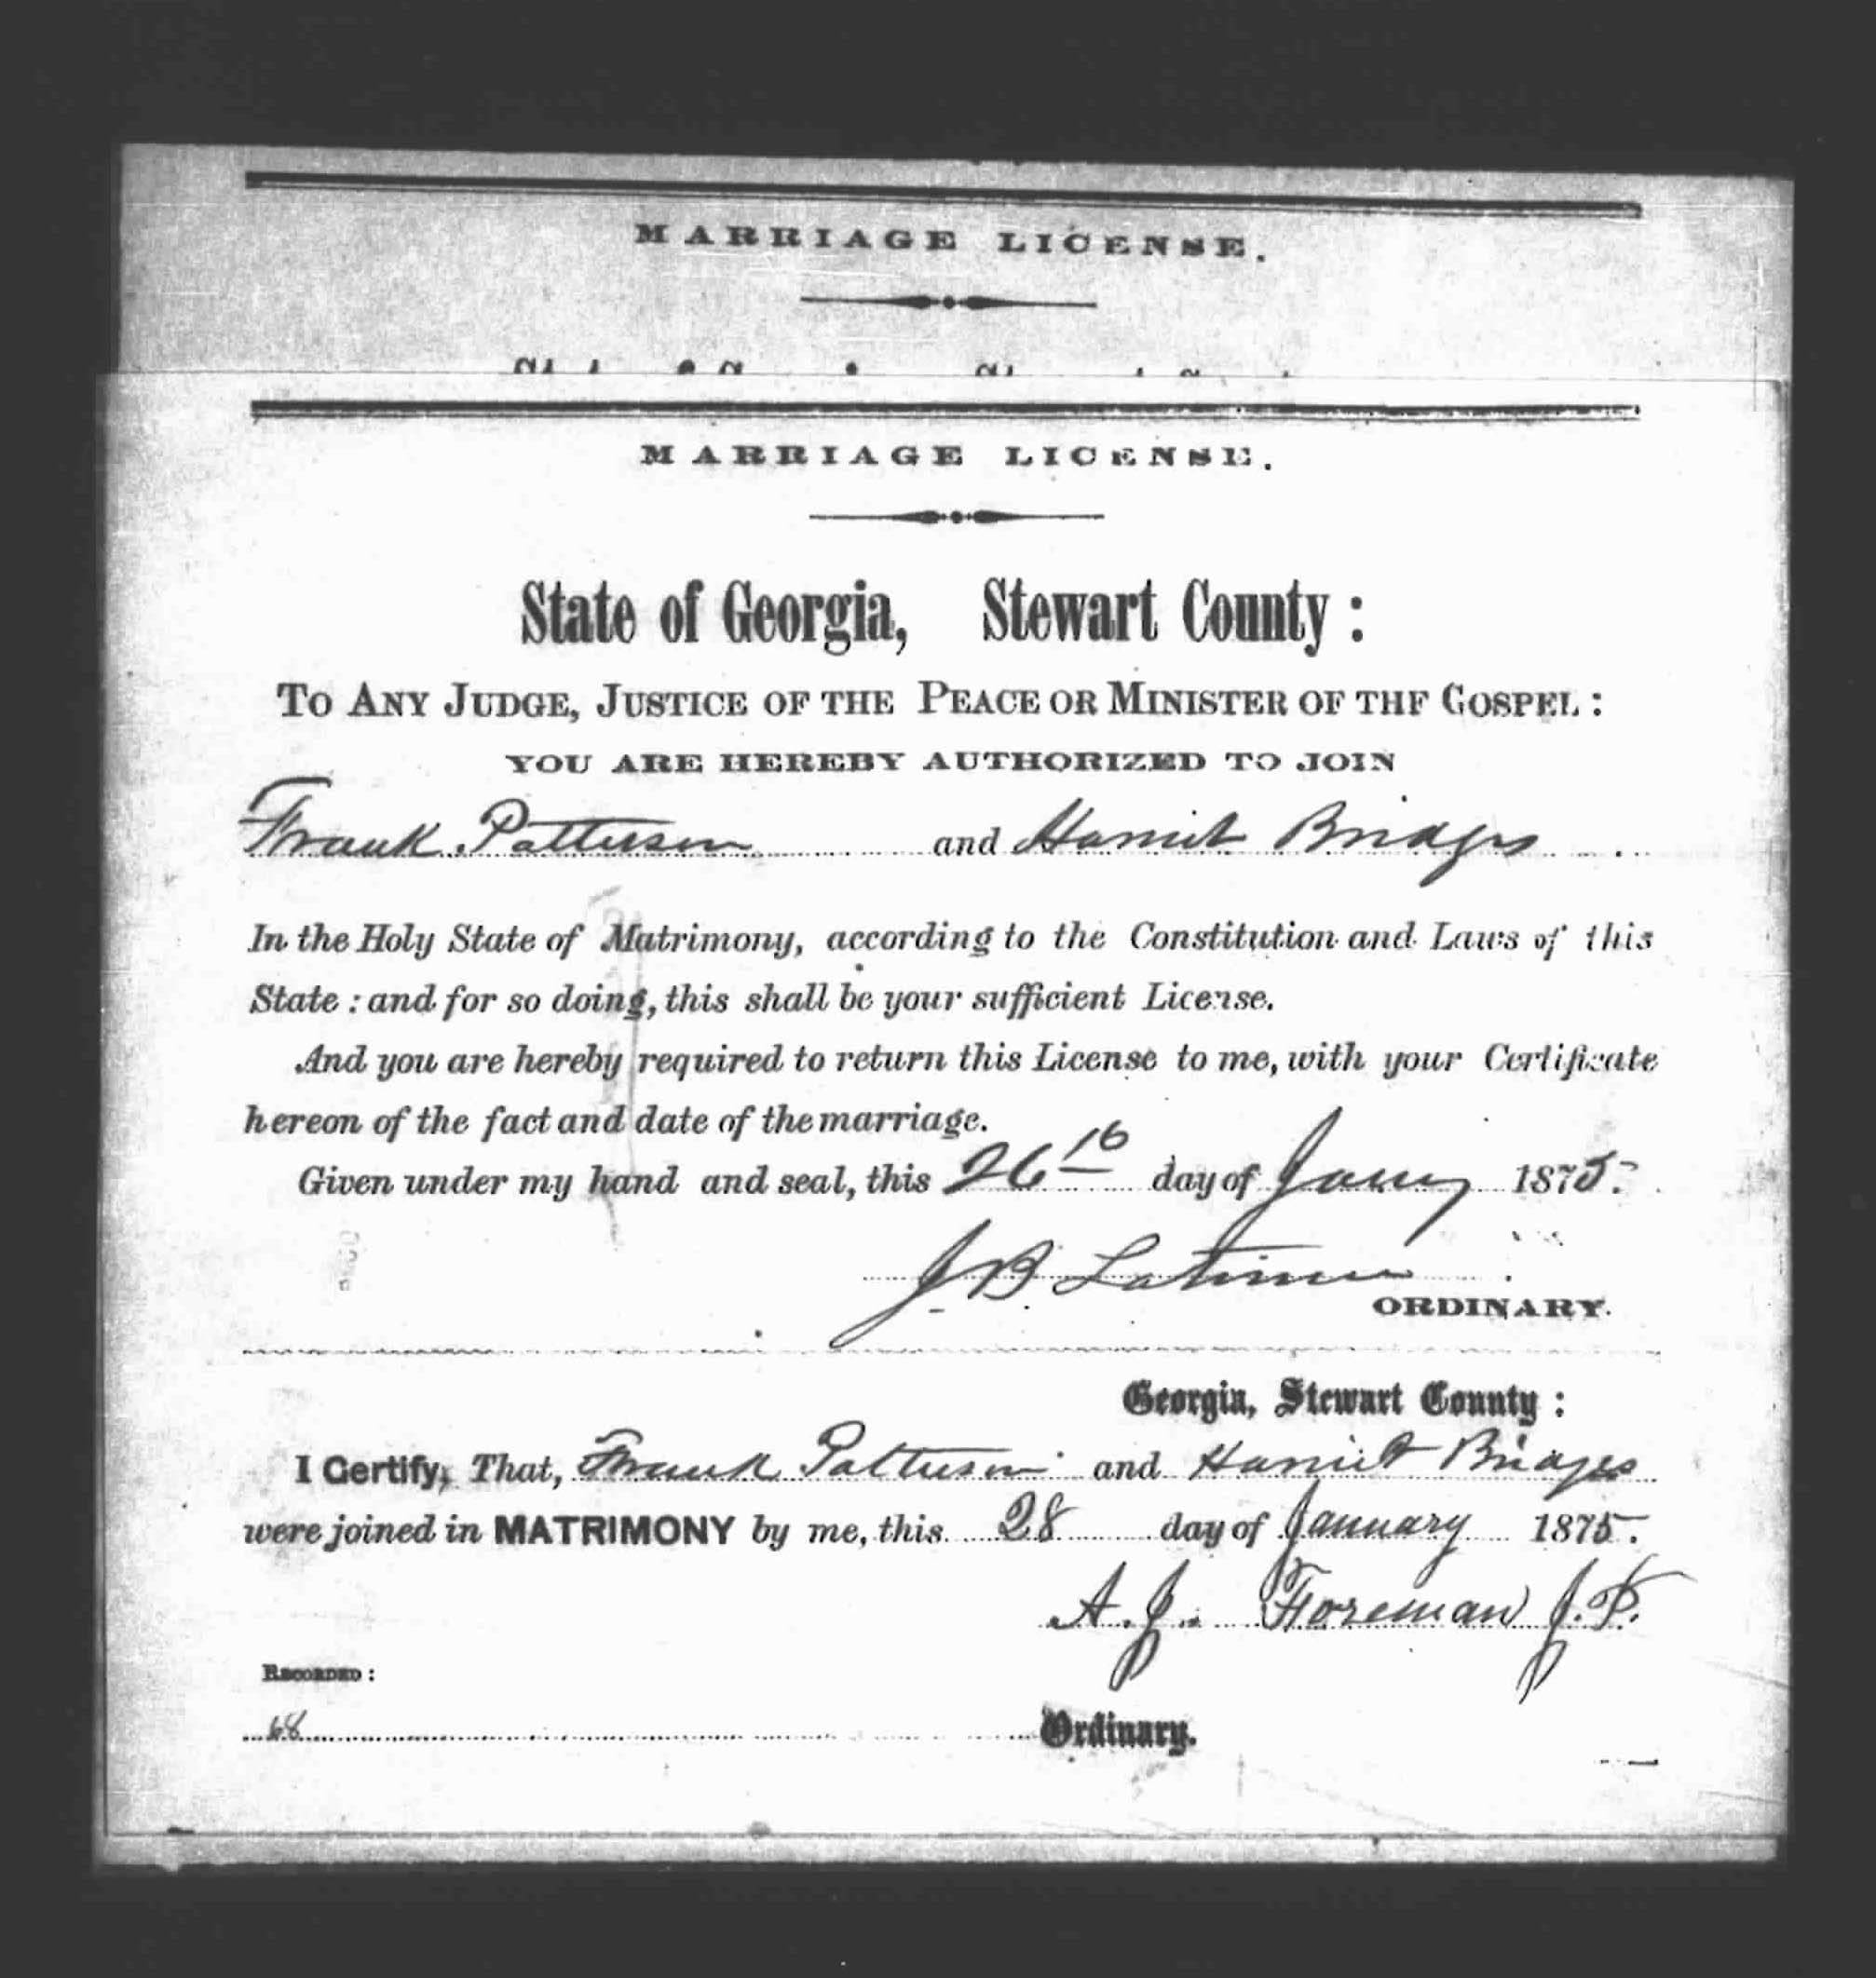 MARRIAGE LICENSE.
MARRIAGE LICENSE.
State of Georgia, Stewart County:
To Any Judge, Justice of the Peace or Minister of the Gospel:
YOU ARE HEREBY AUTHORIZED TO JOIN
Frank Patterson and Harriet Bridges
In the Holy State of Matrimony, according to the Constitution and Laws of this
State: and for so doing, this shall be your sufficient License.
And you are hereby required to return this License to me, with your Certificate
hereon of the fact and date of the marriage.
Given under my hand and seal, this 26th day of Jany 1875.
J B Latimer
ORDINARY.
Georgia, Stewart County:
I Certify, That, Frank Patterson and Harriet Bridges
were joined in MATRIMONY by me, this 28 day of January 1875.
A. J. Foreman J. P.
Recorded:
68 Ordinary.